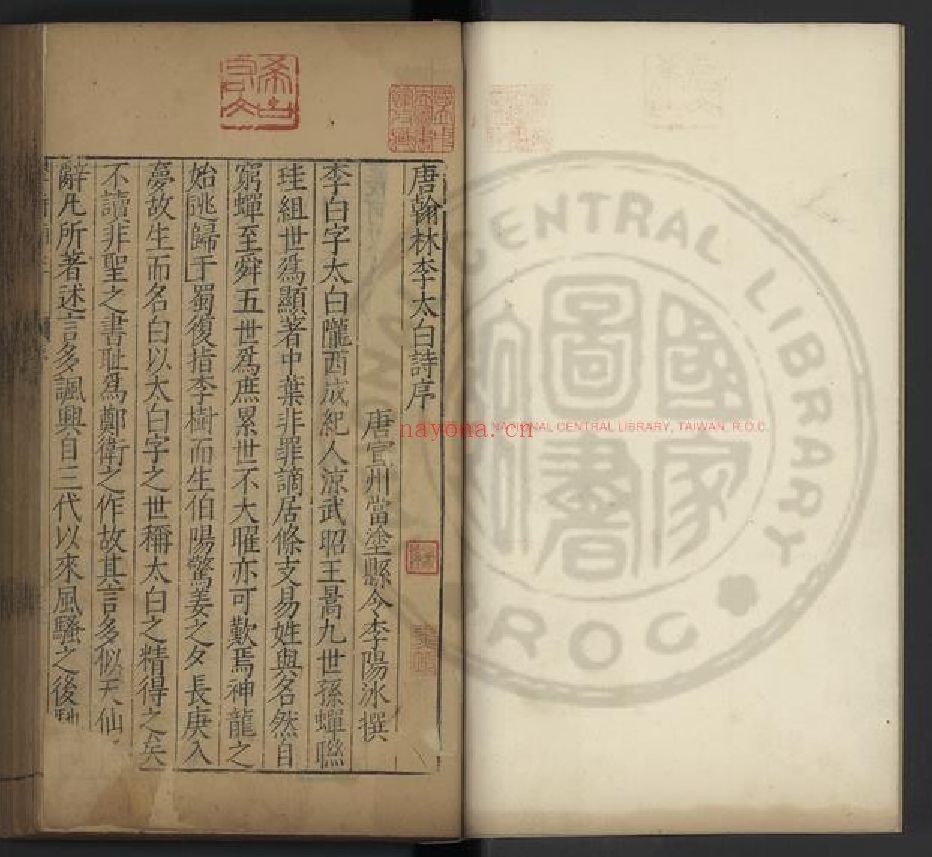 唐翰林李太白詩序
唐宣州當塗縣令李陽冰撰
李白字太白隴西成紀人涼武昭王暠九世孫蟬聯
珪組世爲顯著中葉非罪謫居條支易姓與名然自
窮蟬至舜五世爲庶累世不大曜亦可歎焉神龍之
始逃歸于蜀復指李樹而生伯陽驚姜之夕長庚入
夢故生而名白以太白字之世稱太白之精得之矣
不讀非聖之書耻爲鄭衛之作故其言多似天仙
辭凡所著述言多諷興自三代以來風騷之後
nayona.cn
NATIONAL CENTRAL LIBRARY, TAIWAN R.O.C.
國家圖書
CENTRAL LIBRARY
ROC